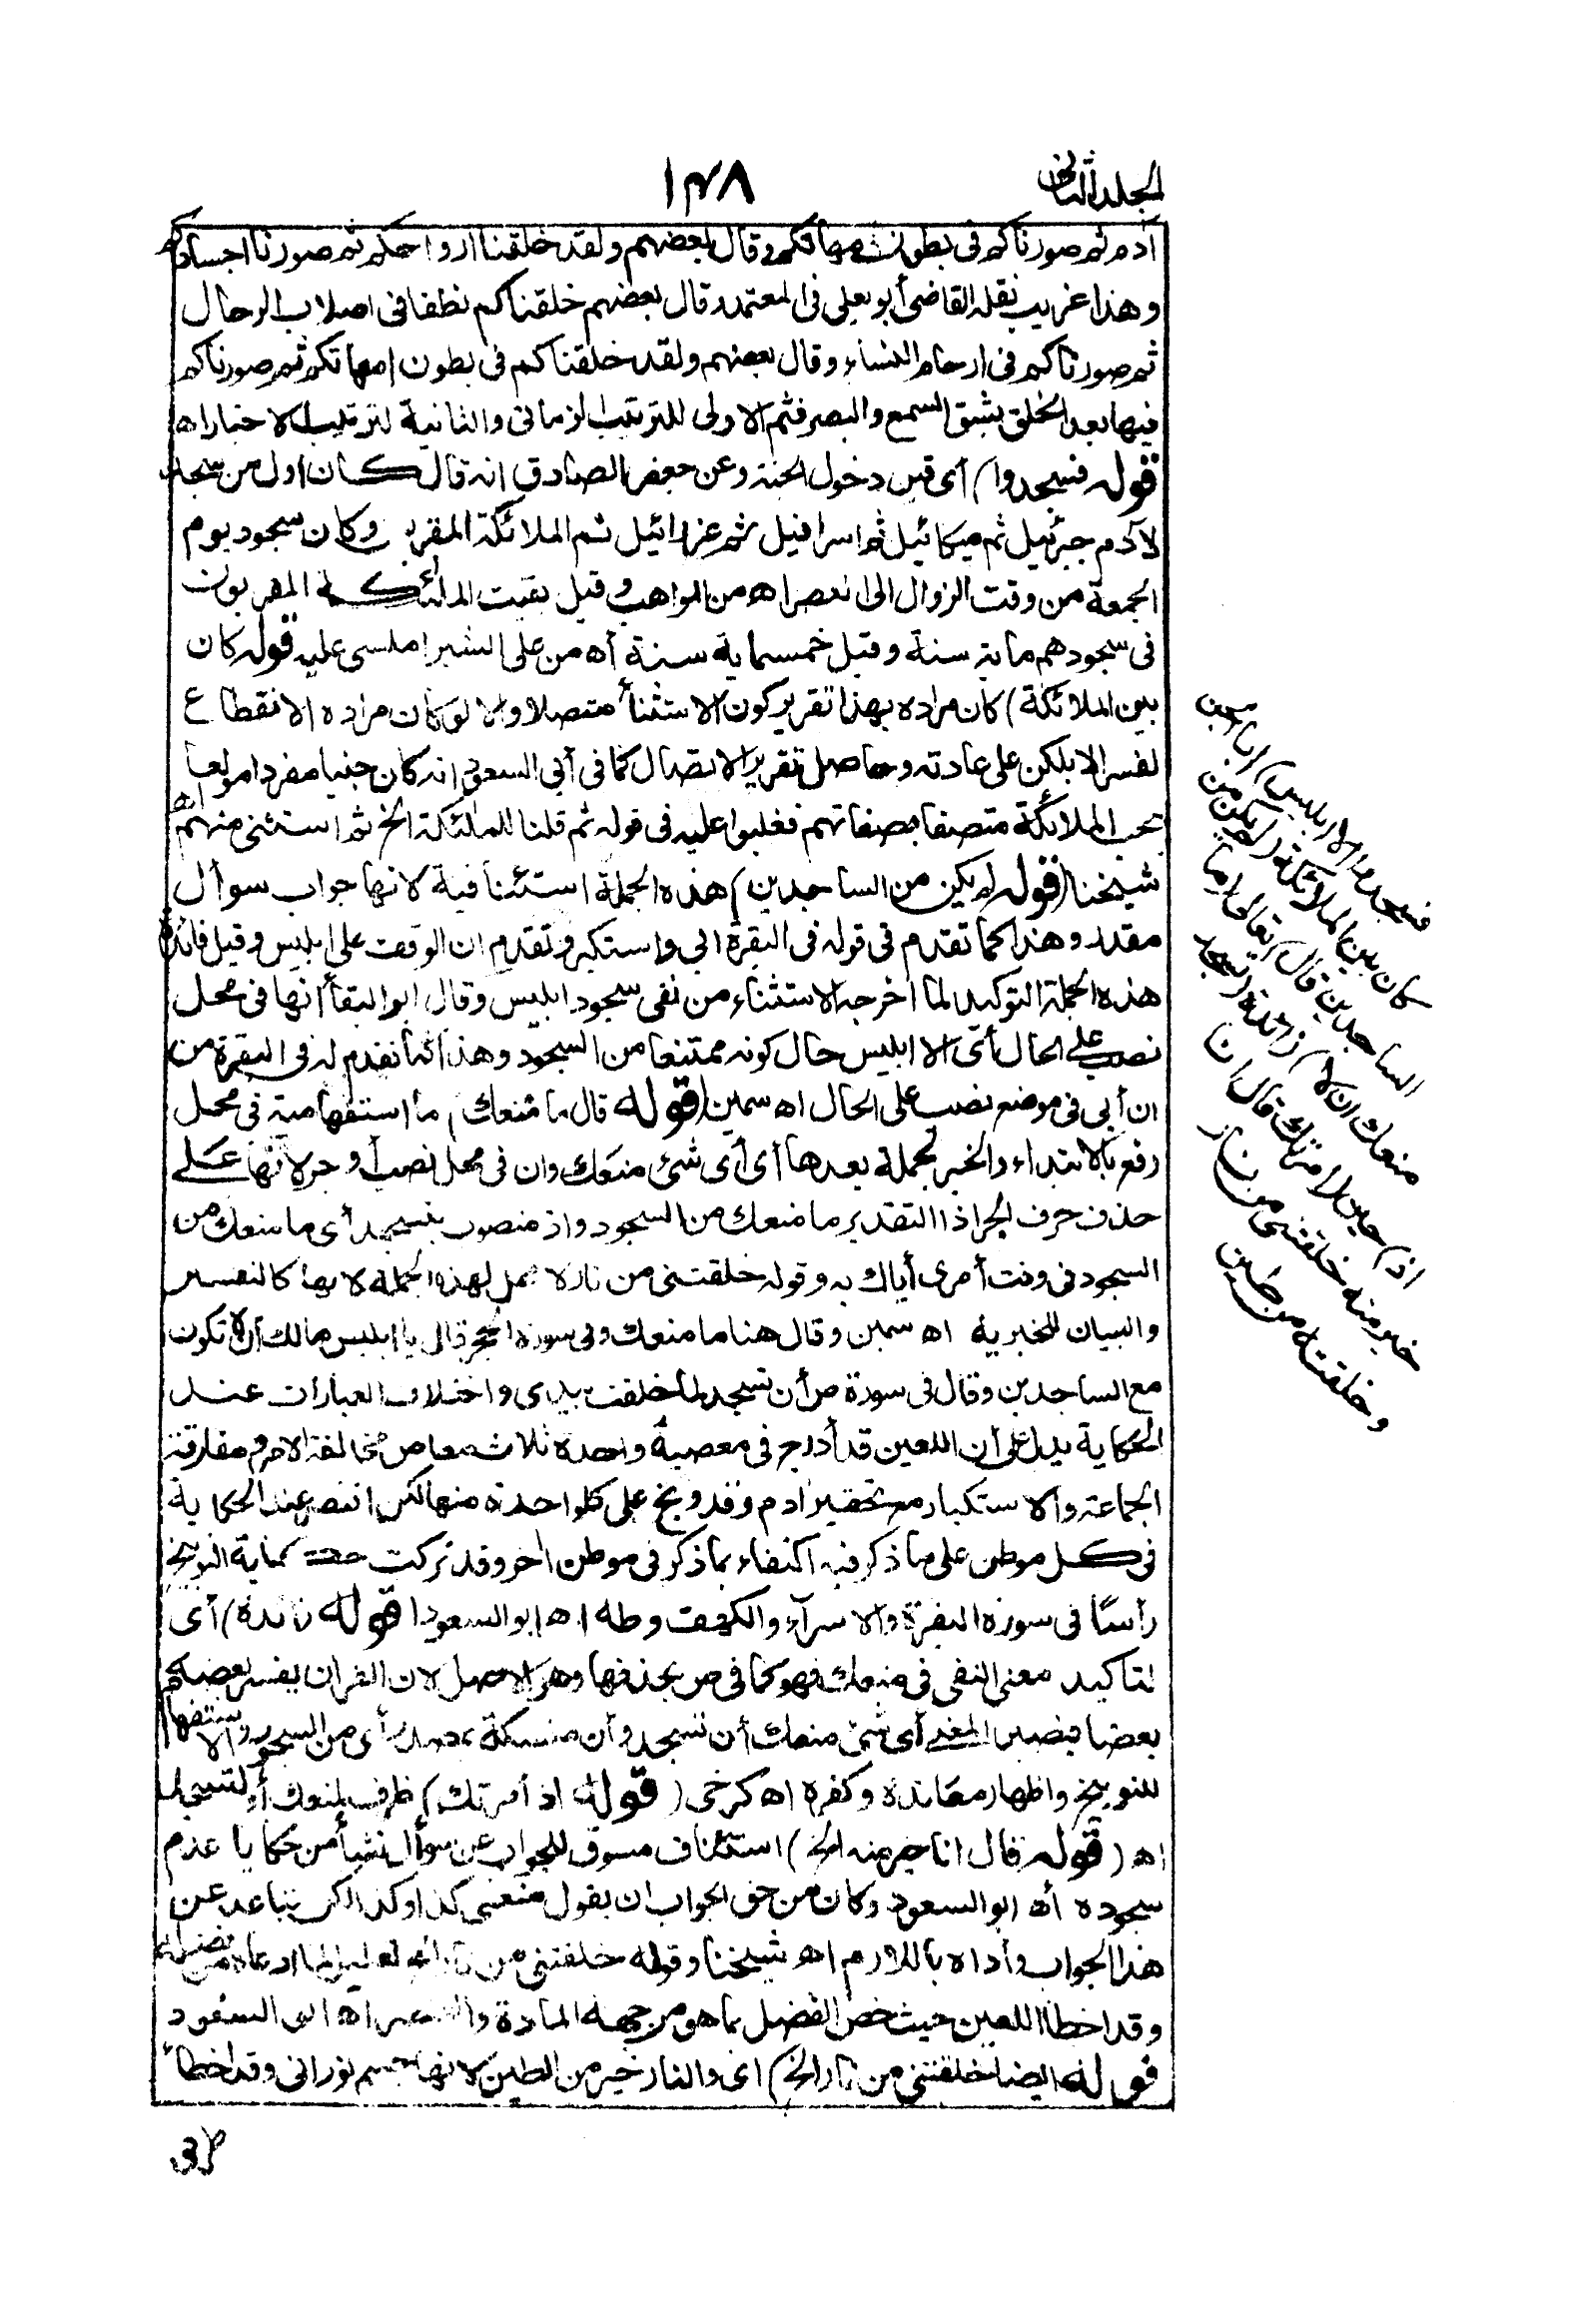 المجلد الثانى
١٣٨
آدم ثم صورناكم فى بطون أمهاتكم وقال بعضهم ولقد خلقنا ارواحكم ثم صورنا اجسادكم
وهذا غريب نقله القاضى أبو يعلى فى المعتمد وقال بعضهم خلقناكم نطفا فى اصلاب الرجال
ثم صورناكم فى ارحام النساء وقال بعضهم ولقد خلقناكم فى بطون امهاتكم ثم صورناكم
فيها بعد الخلق بشق السمع والبصر فثم الاولى للترتيب الزمانى والثانية لترتيب الاخبار اه
قوله فسجدوا) أى قبل دخول الجنة وعن جعفر الصادق انه قال كان اول من سجد
لآدم جبرئيل ثم ميكائيل ثم اسرافيل ثم عزرائيل ثم الملائكة المقربون وكان سجود يوم
الجمعة من وقت الزوال الى العصر اه من المواهب وقيل بقيت الملئكة المقربون
فى سجودهم ماية سنة وقيل خمسماية سنة أه من على الشبراملسى عليه قوله كان
بين الملائكة) كان مراده بهذا تقرير كون الاستثنأ متصلا والا لو كان مراده الانقطاع
لفسر الا بلكن على عادته وحاصل تقرير الاتصال كما فى أبى السعود انه كان جنيا مفردا مولعا
بحب الملائكة متصفا بصفاتهم فغلبوا عليه فى قوله ثم قلنا للملئكة الخ ثم استثنى منهم اه
شيخنا (قوله لم يكن من الساجدين) هذه الجملة استئنافية لانها جواب سوأل
مقدر وهذا كما تقدم فى قوله فى البقرة ابى واستكبر وتقدم ان الوقف على ابليس وقيل فائدة
هذه الجملة التوكيد لما اخرجه الاستثناء من نفى سجود ابليس وقال ابو البقأ انها فى محل
نصب على الحال أى الا ابليس حال كونه ممتنعا من السجود وهذا كما تقدم له فى البقرة من
ان أبى فى موضع نصب على الحال اه سمين (قوله قال ما منعك) ما استفهامية فى محل
رفع بالابتداء والخبر الجملة بعدها أى أى شئ منعك وان فى محل نصب أو جر لانها على
حذف حرف الجر اذ التقدير ما منعك من السجود واذ منصوب بتسجد أى ما منعك من
السجود فى وقت أمرى أياك به وقوله خلقتنى من نار لا محل لهذه الجملة لانها كالتفسير
والبيان للخيرية اه سمين وقال هنا ما منعك وفى سورة الحجر قال يا ابليس مالك أن لا تكون
مع الساجدين وقال فى سورة ص أن تسجد لما خلقت بيدى واختلاف العبارات عند
الحكاية يدل على أن اللعين قد أدرج فى معصية واحدة ثلاث معاص مخالفة الامر ومفارقة
الجماعة والاستكبار مع تحقير آدم وقد وبخ على كل واحدة منها لكن اقتصر عند الحكاية
فى كل موطن على ما ذكر فيه اكتفاء بما ذكر فى موطن أخر وقد تركت حكاية التوبيخ
رأسًا فى سورة البقرة والاسرآء والكهف وطه اه ابو السعود (قوله زائدة) أى
لتاكيد معنى النفى فى منعك فهو كما فى ص بحذفها وهو الاصل لان القران يفسر بعضه
بعضا فيصير المعنى أى شئ منعك أن تسجد وأن منسبكة بمصدر أى من السجود والاستفهام
للتوبيخ واظهار معاندة وكفره اه كرخى (قوله اذ أمرتك) ظرف لمنعك أو لتسجد
اه (قوله قال انا خير منه الخ) استئناف مسوق للجواب عن سوأل نشأ من حكايا عدم
سجوده أه ابو السعود وكان من حق الجواب ان يقول منعنى كذا وكذا لكن تباعد عن
هذا الجواب وأداه باللازم اه شيخنا وقوله خلقتنى من نار الخ تعليل لما ادعاه من فضله
وقد اخطأ اللعين حيث خص الفضل بما هو من جهة المادة والعنصر اه ابى السعود
قوله ايضا خلقتنى من نار الخ) اى والنار خير من الطين لانها جسم نورانى وقد اخطأ
فسجدوا الا ابليس) ابا الجن
كان بين الملائكة (لم يكن من
الساجدين قال) تعالى (ما
منعك ان لا) زائدة (تسجد
اذ) حين (امرتك قال انا
خير منه خلقتنى من نار
وخلقته من طين